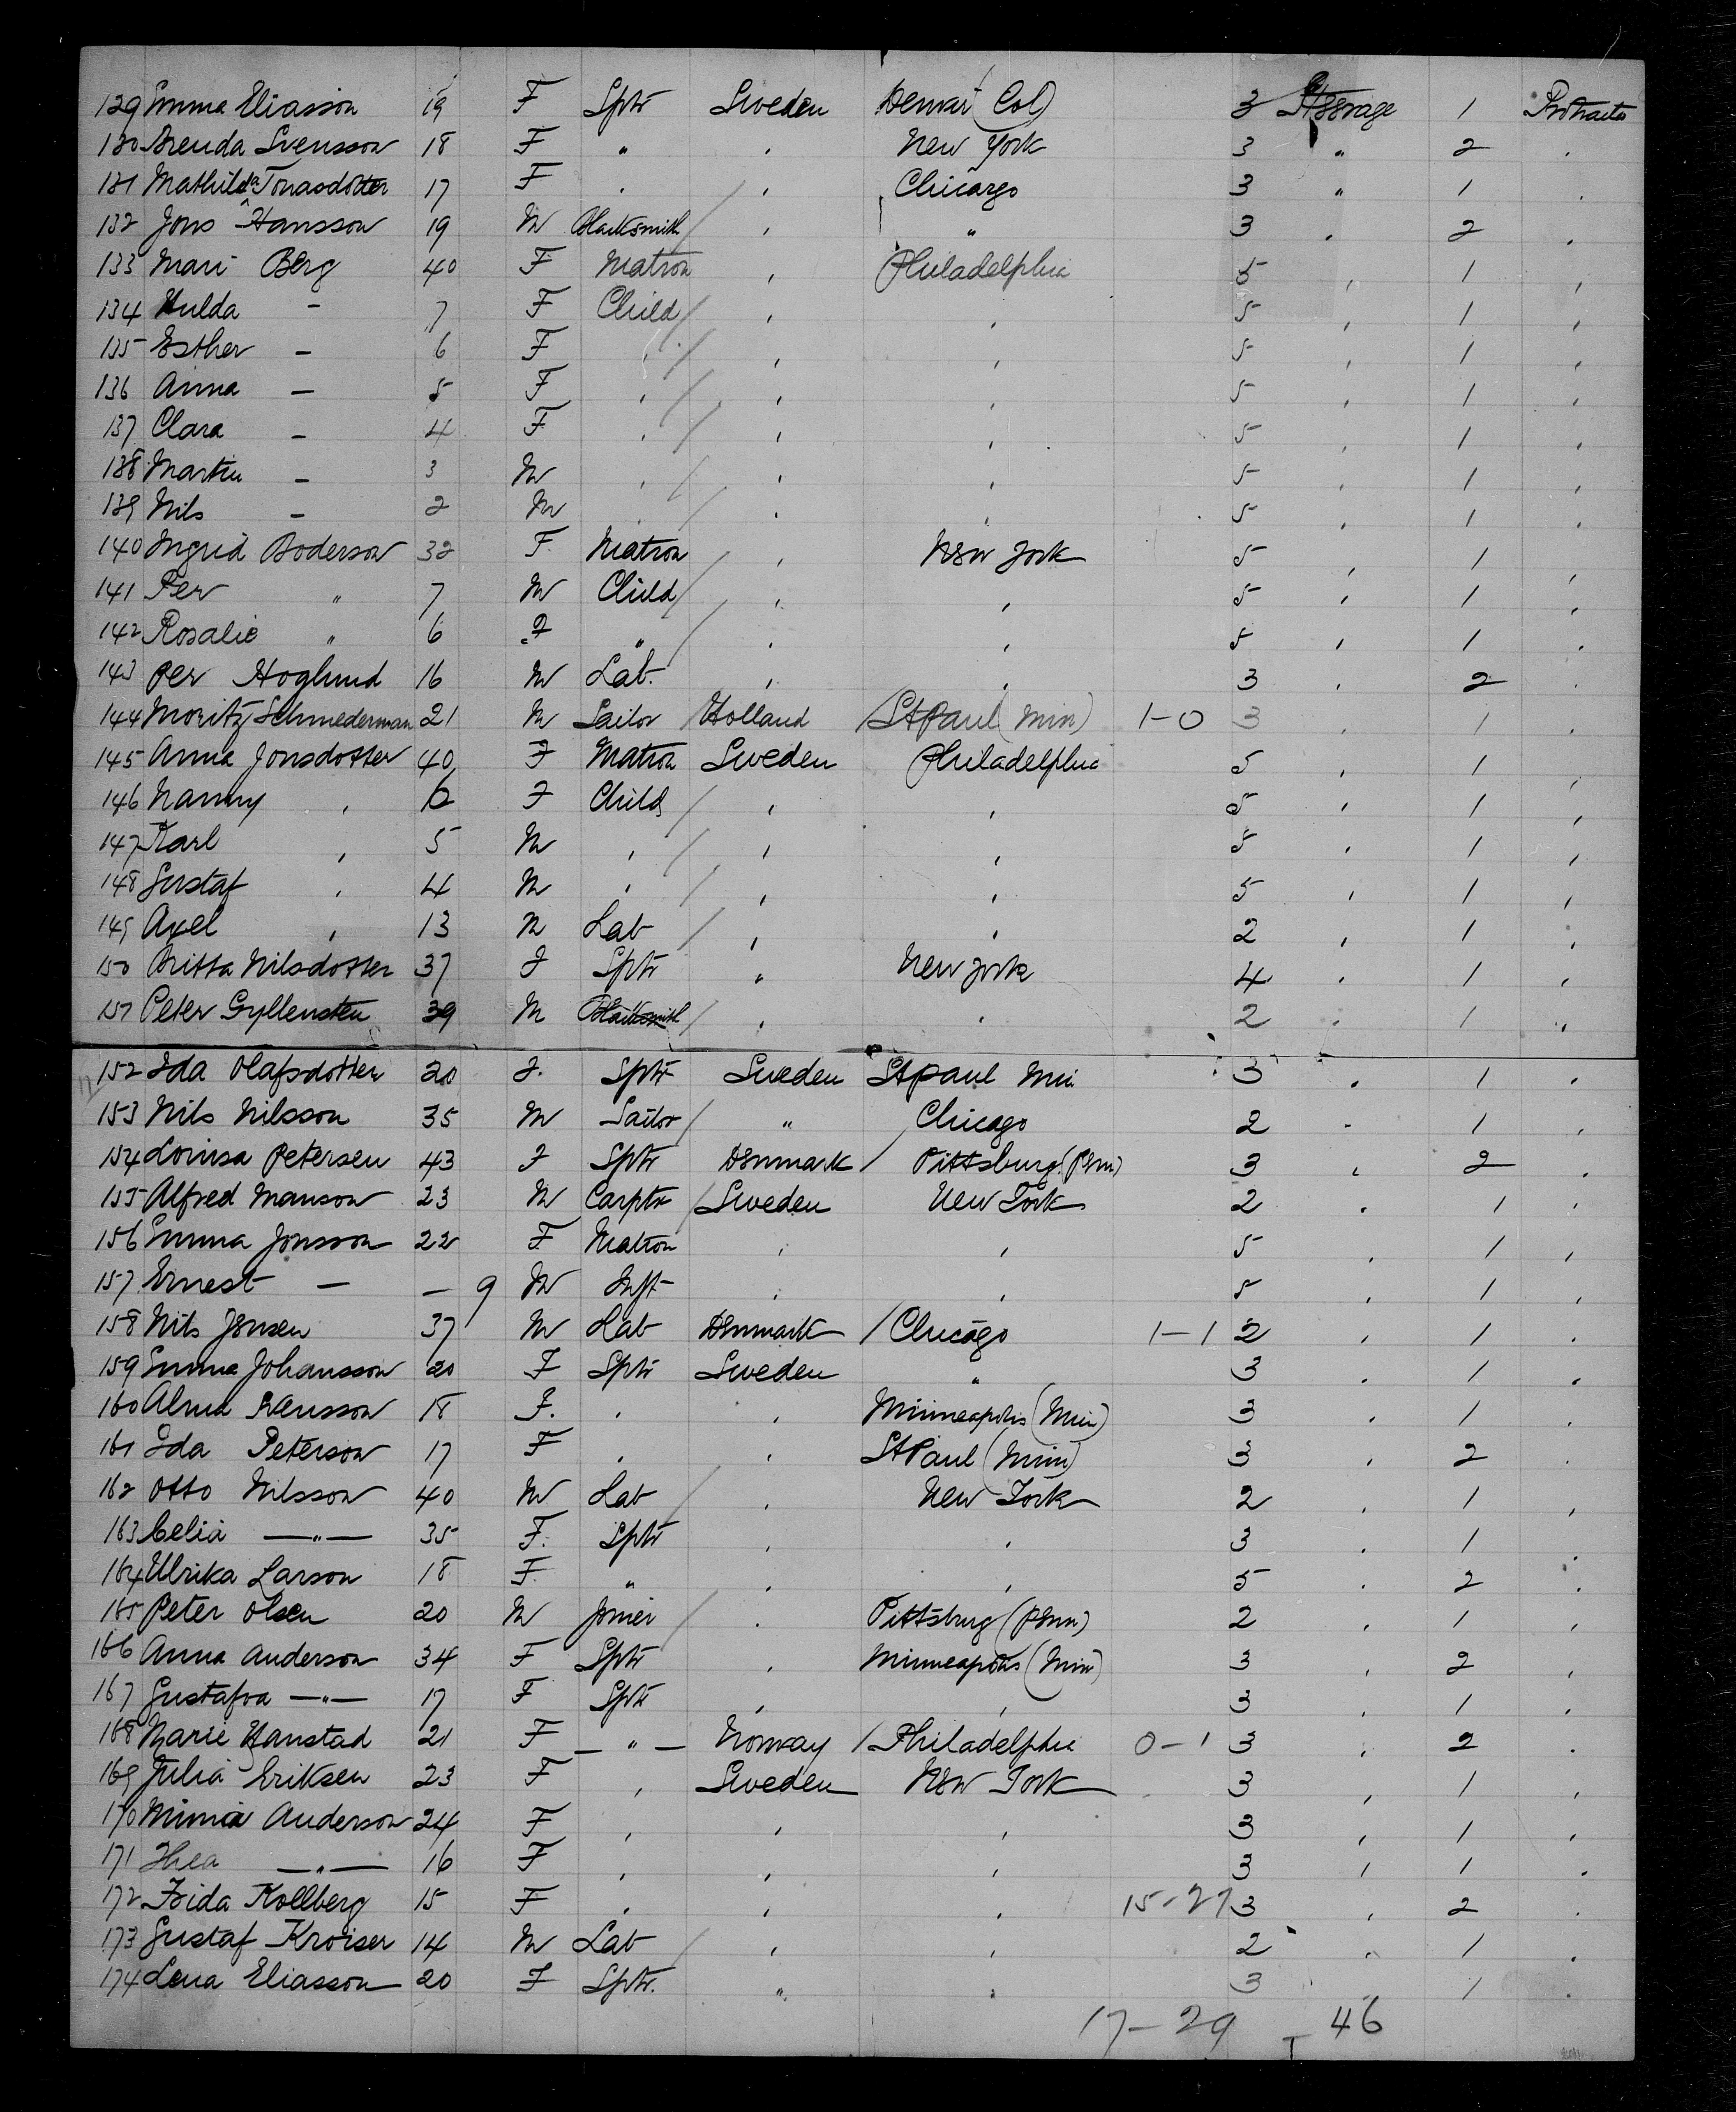 129 Emma Eliasson 19 F Sptr Sweden Denver (Col) 3 Steerage 1 Protracted
130 Brenda Svensson 18 F " , New York 3 " 2 .
131 Mathilda Jonasdotter 17 F . , Chicargo 3 " 1 .
132 Jons Hansson 19 M Blacksmith / , " 3 . 2 ,
133 Mari Berg 40 F Matron , Philadelphia 5 , 1 ,
134 Hulda - 7 F Child / , , 5 , 1 ,
135 Esther - 6 F , / , , 5 , 1 ,
136 Anna - 5 F , / , , 5 , 1 ,
137 Clara - 4 F , / , , 5 , 1 ,
138 Martin - 3 M , / , , 5 , 1 ,
139 Nils - 2 M , / , , 5 , 1 ,
140 Ingrid Boderson 32 F Matron , New York 5 , 1 ,
141 Per " 7 M Child / , , 5 , 1 ,
142 Rosalie " 6 F " / , , 5 , 1 ,
143 Per Hoglund 16 M Lab. , , 3 , 2 .
144 Moritz Schmederman 21 M Sailor / Holland / St Paul (Min) 1-0 3 , 1 ,
145 Anna Jonsdotter 40 F Matron Sweden Philadelphia 5 , 1 ,
146 Nanny , 6 F Child / , , 5 , 1 ,
147 Karl , 5 M , / , , 5 , 1 ,
148 Gustaf , 4 M , / , , 5 , 1 ,
149 Axel , 13 M Lab / , , 2 , 1 ,
150 Britta Nilsdotter 37 F Sptr " New York 4 , 1 ,
151 Peter Gyllensten 39 M Blacksmith / , , 2 . 1 "
152 Ida Olafsdotter 20 F. Sptr Sweden St Paul Min 3 , 1 .
153 Nils Nilsson 35 M Sailor / " Chicago 2 - 1 ,
154 Lovisa Petersen 43 F Sptr Denmark / Pittsburg (Penn) 3 , 2 .
155 Alfred Manson 23 M Carptr / Sweden New York 2 , 1 ,
156 Emma Jonsson 22 F Matron , , 5 , 1 ,
157 Ernest - - 9 M Inft , , 5 , 1 ,
158 Nils Jensen 37 M Lab Denmark / Chicago 1-1 2 , 1 .
159 Emma Johansson 20 F Sptr Sweden " 3 , 1 .
160 Alma Svensson 18 F. . , Minneapolis (Min) 3 , 1 .
161 Ida Peterson 17 F . , St Paul (Minn) 3 , 2 .
162 Otto Nilsson 40 M Lab / , New York 2 , 1 ,
163 Celia -"- 35 F. Sptr , , 3 . 1 .
164 Ulrika Larson 18 F. " , , 5 . 2 .
165 Peter Olsen 20 M Joiner / . Pittsburg (Penn) 2 , 1 ,
166 Anna Anderson 34 F Sptr , Minneapolis (Min) 3 , 2 ,
167 Gustafva -"- 17 F Sptr , , 3 , 1 .
168 Marie Hanstad 21 F -"- Norway / Philadelphia 0-1 3 , 2 .
169 Julia Eriksen 23 F , Sweden New York 3 , 1 ,
170 Minnia Anderson 24 F , , , 3 , 1 ,
171 Thea -"- 16 F , , , 3 , 1 .
172 Frida Kollberg 15 F , , , 15-27 3 , 2 .
173 Gustaf Kroiser 14 M Lab / , , 2 , 1 .
174 Lena Eliasson 20 F Sptr. " , 3 1 .
17-29 46